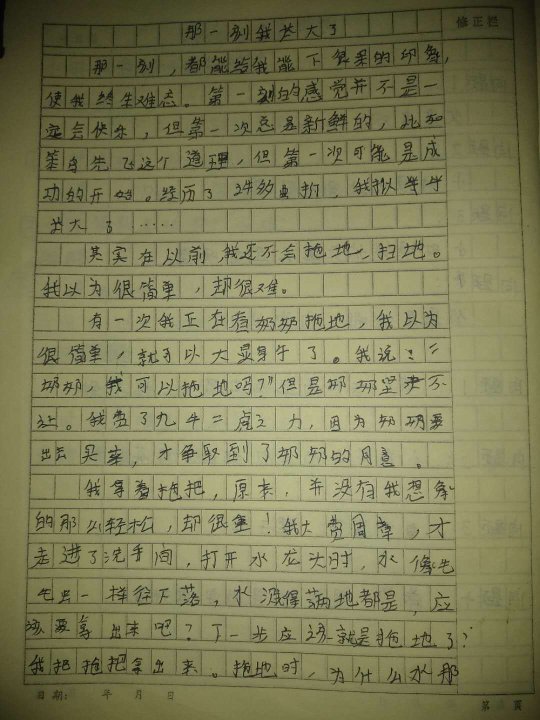 修正栏
那一刻我长大了
那一刻,都能给我能下很深的印象,
使我终生难忘。第一刻的感觉并不是一
定会快乐,但第一次总是新鲜的,比如
笨鸟先飞这个道理,但第一次可能是成
功的开始。经历了许多曲折,我
长大了……
其实在以前,我还不会拖地、扫地。
我以为很简单,却很难。
有一次我正在看奶奶拖地,我以为
很简单,就可以大显身手了。我说:“
奶奶,我可以拖地吗?”但是奶奶坚决不
让。我费了九牛二虎之力,因为奶奶要
出去买菜,才争取到了奶奶的同意。
我拿着拖把,原来,并没有我想象
的那么轻松,却很重!我大费周章,才
走进了洗手间,打开水龙头时,水像
一样往下落,水溅得满地都是,应
该要拿出来吧?下一步应该就是拖地了?
我把拖把拿出来。拖地时,为什么水那
日期: 年 月 日
第 页